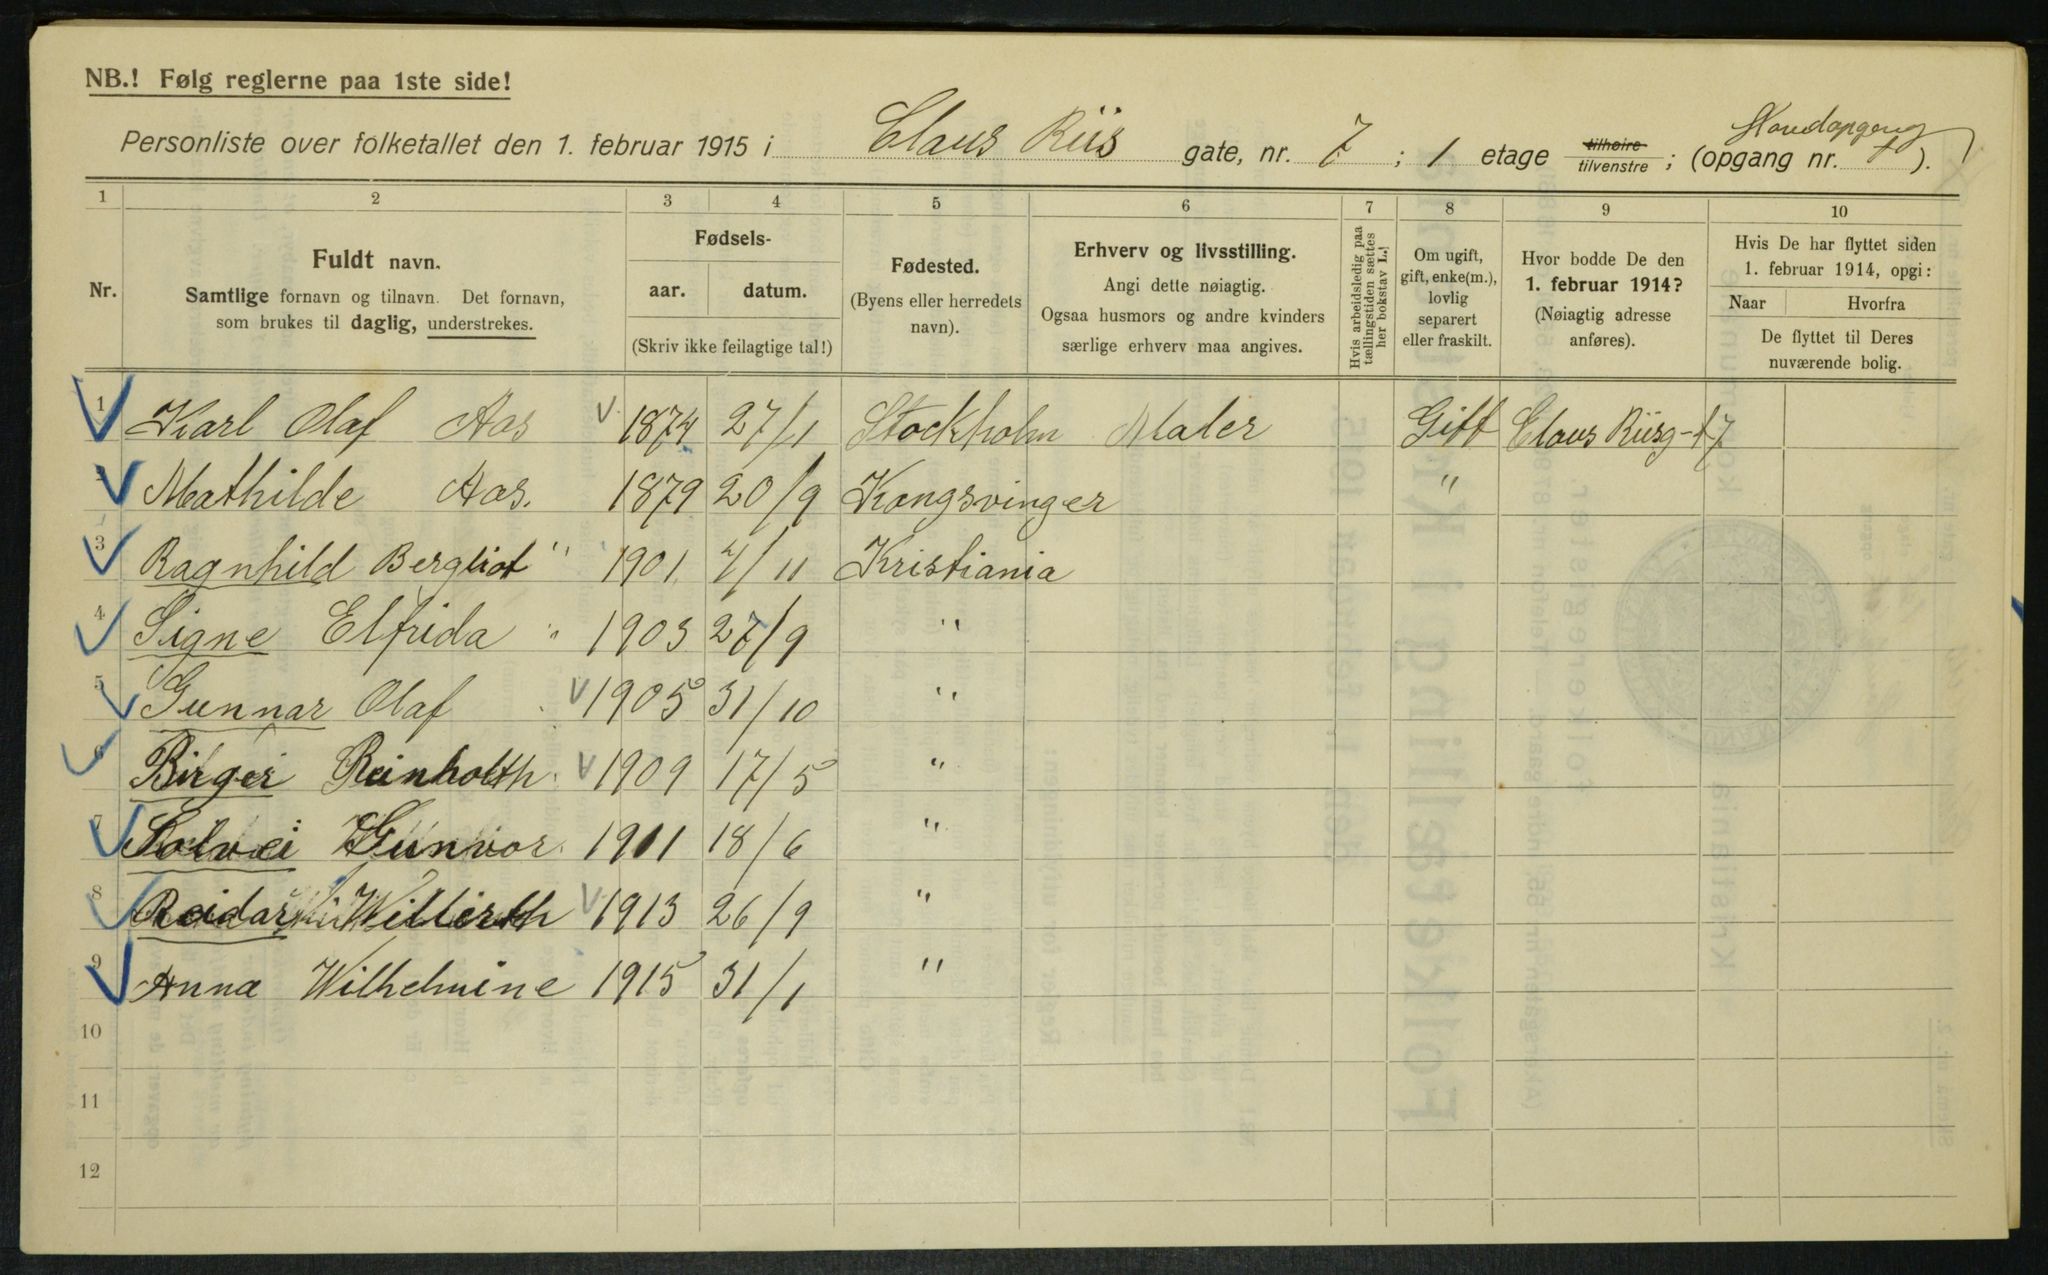 NB.! Følg reglerne paa 1ste side!
Personliste over folketallet den 1. februar 1915 i Claus Riis gate, nr. 7 ; 1 etage tilhøire tilvenstre ; (opgang nr. ).
1 2 3 4 5 6 7 8 9 10
Nr.
Fuldt navn.
Samtlige fornavn og tilnavn. Det fornavn,
som brukes til daglig, understrekes.
Fødsels-
aar. datum.
(Skriv ikke feilagtige tal!)
Fødested.
(Byens eller herredets
navn).
Erhverv og livsstilling.
Angi dette nøiagtig.
Ogsaa husmors og andre kvinders
særlige erhverv maa angives.
Hvis arbeidsledig paa
tællingstiden sættes
her bokstav L.!
Om ugift,
gift, enke(m.),
lovlig
separert
eller fraskilt.
Hvor bodde De den
1. februar 1914?
(Nøiagtig adresse
anføres).
Hvis De har flyttet siden
1. februar 1914, opgi:
Naar Hvorfra
De flyttet til Deres
nuværende bolig.
1 Karl Olaf Aas 1874 27/1 Stockholm Maler Gift Claus Riisg-t 7
2 Mathilde Aas. 1879 20/9 Kongsvinger "
3 Ragnhild Bergliot " 1901 4/11 Kristiania
4 Signe Elfrida " 1903 27/9 "
5 Gunnar Olaf 1905 31/10 "
6 Birger Reinholth 1909 17/5 "
7 Solvei Gunvor 1911 18/6 "
8 Reidar 1913 26/9 "
9 Anna Wilhelmine 1915 31/1 "
10
11
12